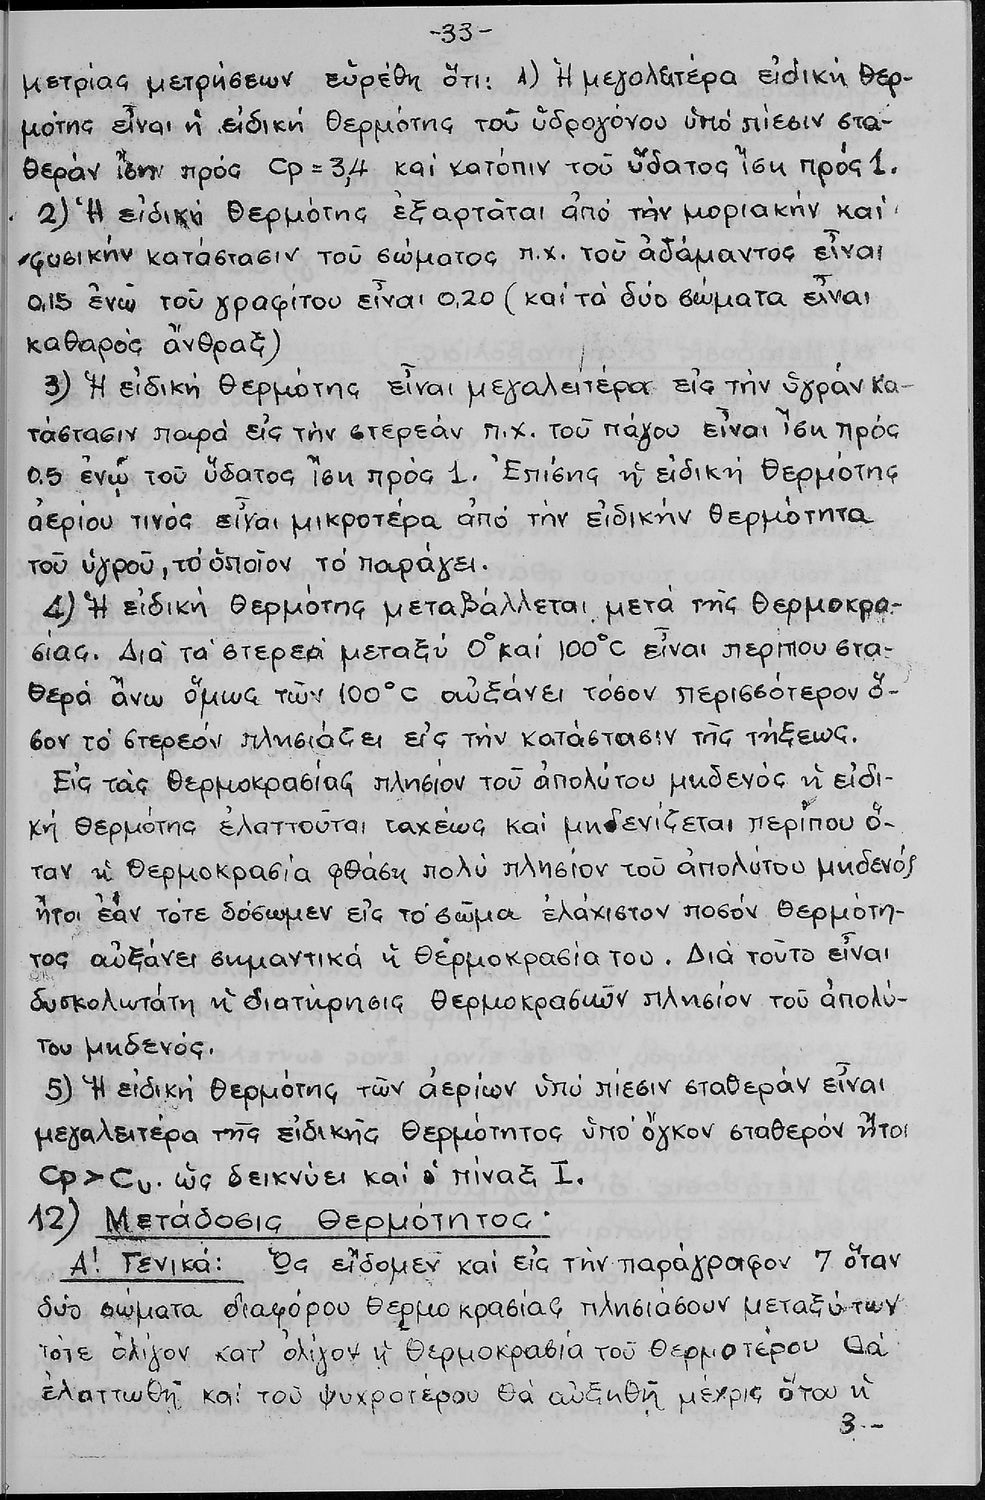 -33-
μετρίας μετρήσεων εὑρέθη ὅτι: 1) Ἡ μεγαλειτέρα εἰδική θερ-
μότης εἶναι ἡ εἰδική θερμότης τοῦ ὑδρογόνου ὑπό πίεσιν στα-
θεράν ἴση πρός Cp = 3,4 καί κατόπιν τοῦ ὕδατος ἴση πρός 1.
2) Ἡ εἰδική θερμότης ἐξαρτᾶται ἀπό τήν μοριακήν καί
φυσικήν κατάστασιν τοῦ σώματος π.χ. τοῦ ἀδάμαντος εἶναι
0,15 ἐνῷ τοῦ γραφίτου εἶναι 0,20 (καί τά δύο σώματα εἶναι
καθαρός ἄνθραξ)
3) Ἡ εἰδική θερμότης εἶναι μεγαλειτέρα εἰς τήν ὑγράν κα-
τάστασιν παρά εἰς τήν στερεάν π.χ. τοῦ πάγου εἶναι ἴση πρός
0,5 ἐνῷ τοῦ ὕδατος ἴση πρός 1. Ἐπίσης ἡ εἰδική θερμότης
ἀερίου τινός εἶναι μικροτέρα ἀπό τήν εἰδικήν θερμότητα
τοῦ ὑγροῦ, τό ὁποῖον τό παράγει.
4) Ἡ εἰδική θερμότης μεταβάλλεται μετά τῆς θερμοκρα-
σίας. Διά τά στερεά μεταξύ 0° καί 100°C εἶναι περίπου στα-
θερά ἄνω ὅμως τῶν 100°C αὐξάνει τόσον περισσότερον ὅ-
σον τό στερεόν πλησιάζει εἰς τήν κατάστασιν τῆς τήξεως.
Εἰς τάς θερμοκρασίας πλησίον τοῦ ἀπολύτου μηδενός ἡ εἰδι-
κή θερμότης ἐλαττοῦται ταχέως καί μηδενίζεται περίπου ὅ-
ταν ἡ θερμοκρασία φθάση πολύ πλησίον τοῦ ἀπολύτου μηδενός
ἤτοι ἐάν τότε δόσωμεν εἰς τό σῶμα ἐλάχιστον ποσόν θερμότη-
τος αὐξάνει σημαντικά ἡ θερμοκρασία του. Διά τοῦτο εἶναι
δυσκολωτάτη ἡ διατήρησις θερμοκρασιῶν πλησίον τοῦ ἀπολύ-
του μηδενός.
5) Ἡ εἰδική θερμότης τῶν ἀερίων ὑπό πίεσιν σταθεράν εἶναι
μεγαλειτέρα τῆς εἰδικῆς θερμότητος ὑπό ὄγκον σταθερόν ἤτοι
Cp > Cυ. ὡς δεικνύει καί ὁ πίναξ I.
12) Μετάδοσις θερμότητος·
Α! Γενικά: Ὡς εἴδομεν καί εἰς τήν παράγραφον 7 ὅταν
δύο σώματα διαφόρου θερμοκρασίας πλησιάσουν μεταξύ των
τότε ὀλίγον κατ' ὀλίγον ἡ θερμοκρασία τοῦ θερμοτέρου θά
ἐλαττωθῆ καί τοῦ ψυχροτέρου θά αὐξηθῆ μέχρις ὅτου ἡ
3.-